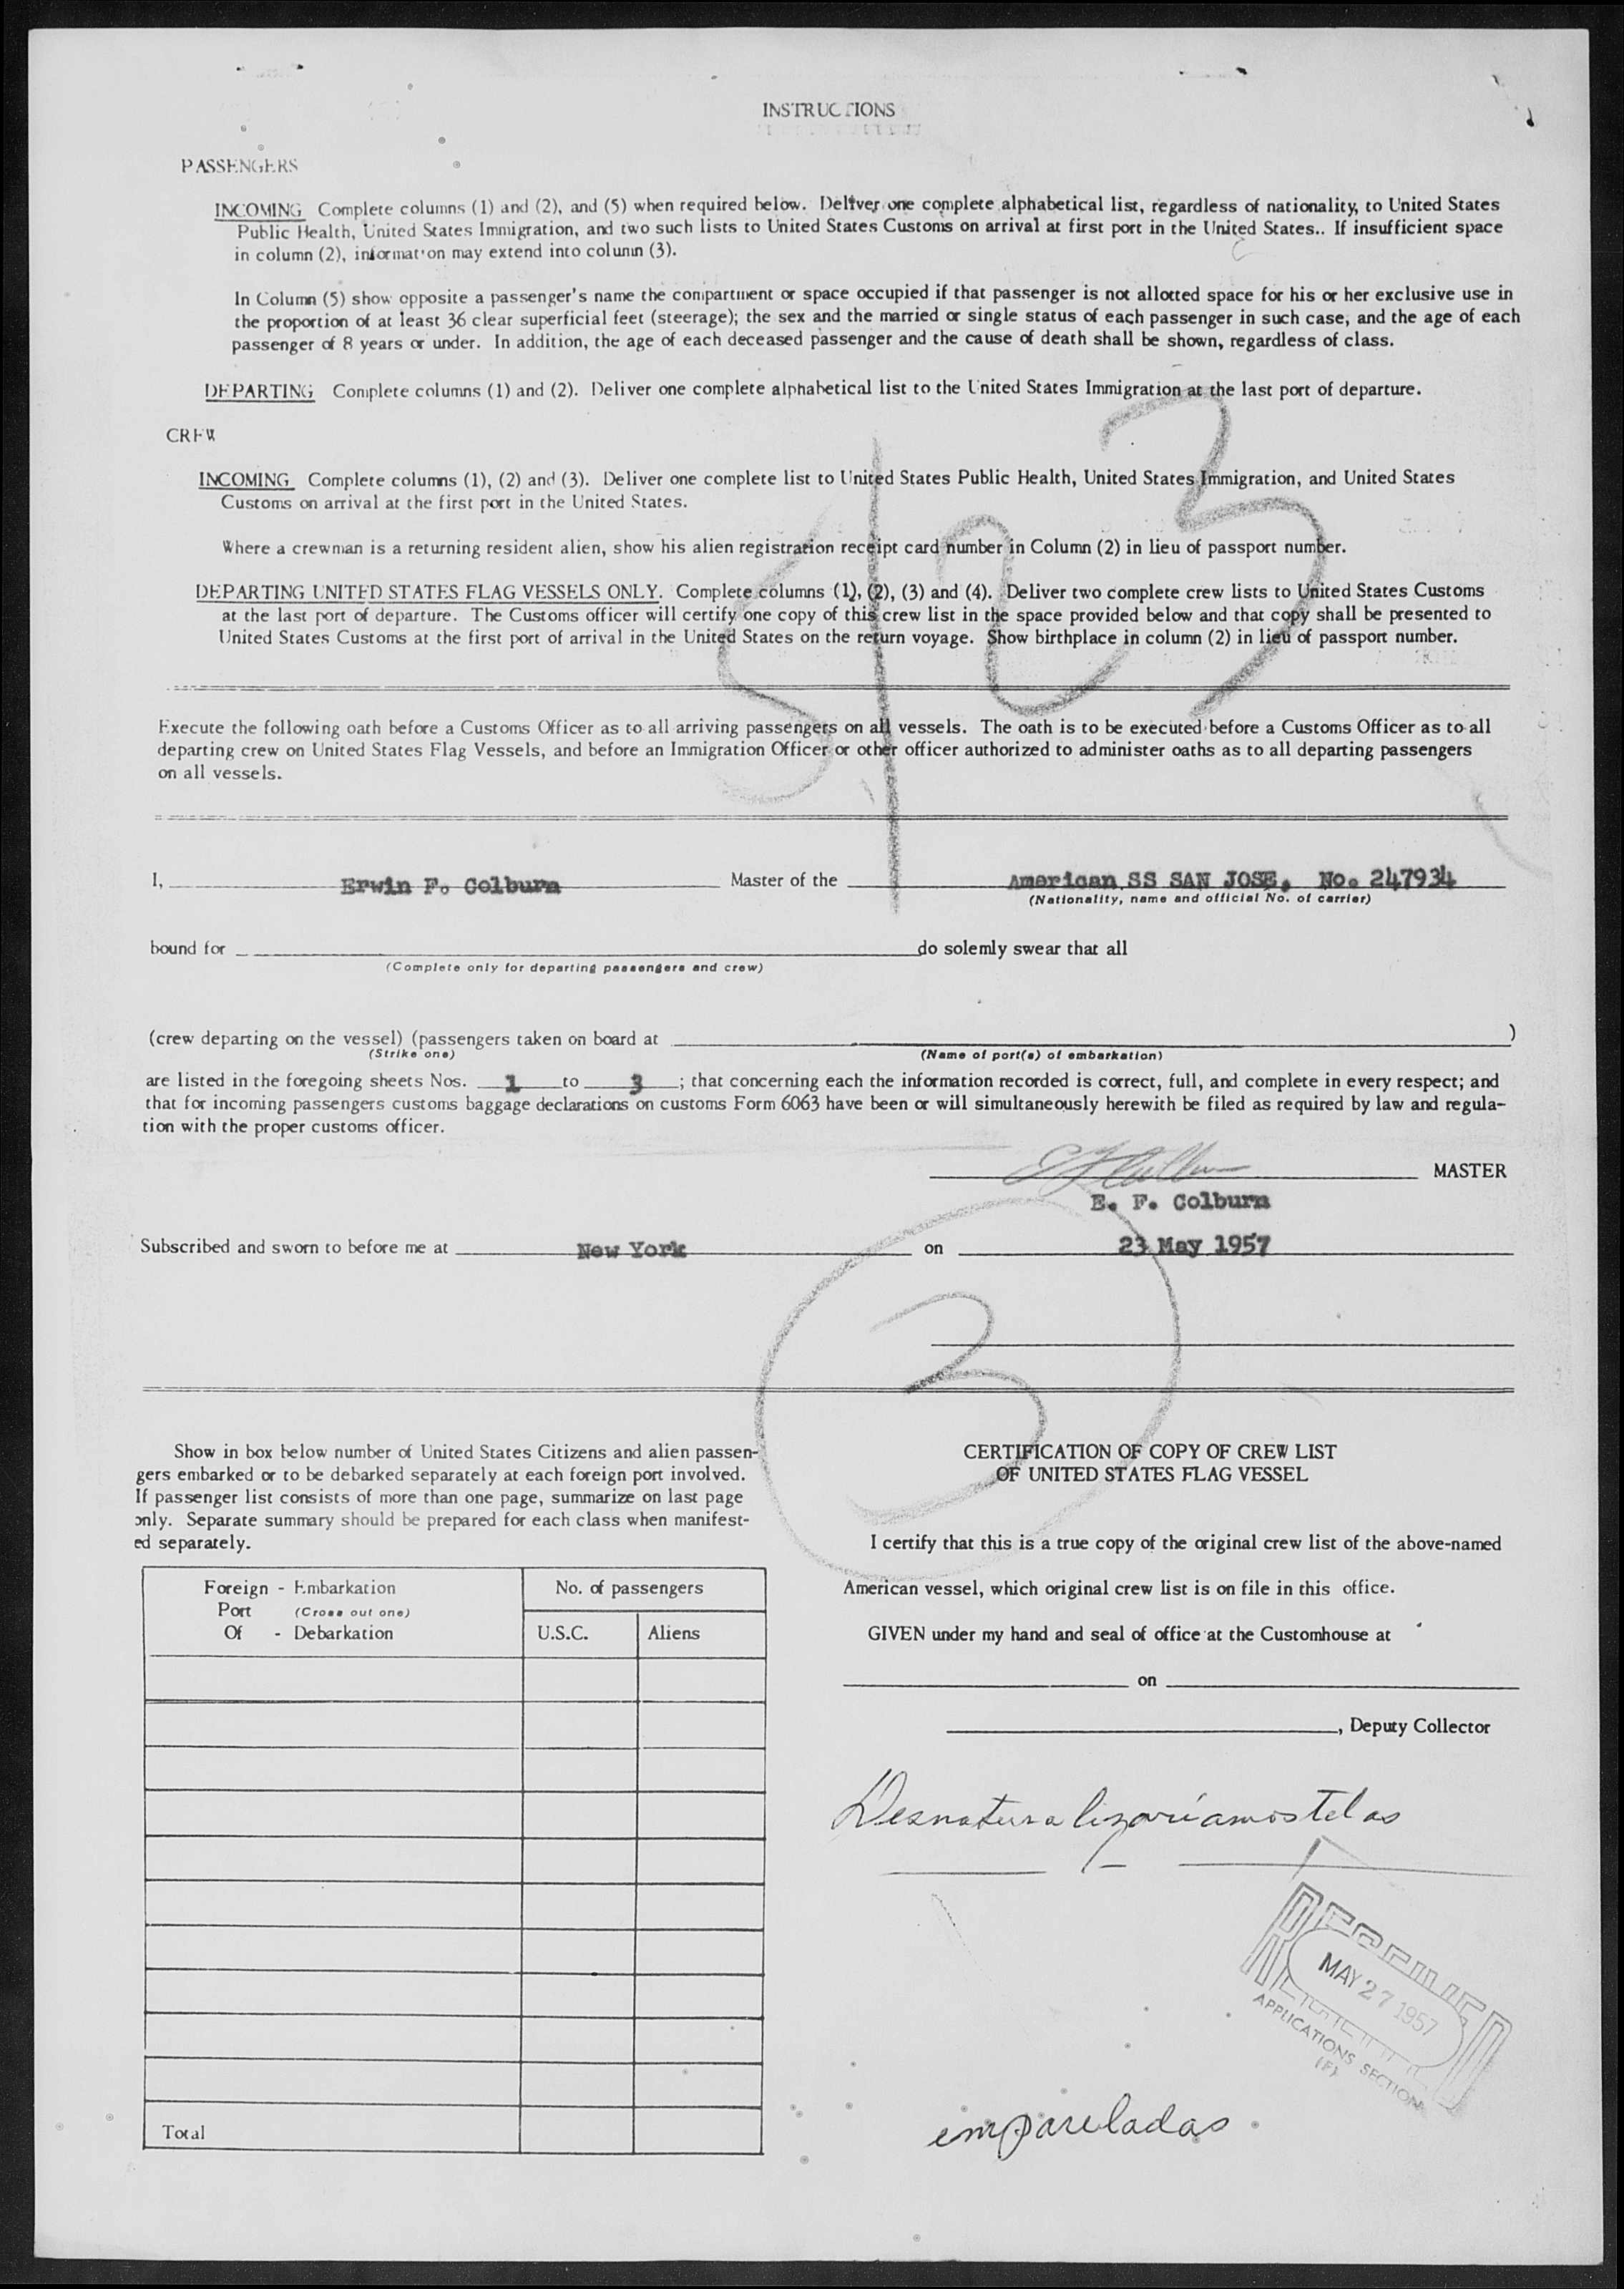 INSTRUCTIONS
PASSENGERS
INCOMING Complete columns (1) and (2), and (5) when required below. Deliver one complete alphabetical list, regardless of nationality, to United States
Public Health, United States Immigration, and two such lists to United States Customs on arrival at first port in the United States.. If insufficient space
in column (2), information may extend into column (3).
In Column (5) show opposite a passenger's name the compartment or space occupied if that passenger is not allotted space for his or her exclusive use in
the proportion of at least 36 clear superficial feet (steerage); the sex and the married or single status of each passenger in such case, and the age of each
passenger of 8 years or under. In addition, the age of each deceased passenger and the cause of death shall be shown, regardless of class.
DEPARTING Complete columns (1) and (2). Deliver one complete alphabetical list to the United States Immigration at the last port of departure.
CREW
INCOMING Complete columns (1), (2) and (3). Deliver one complete list to United States Public Health, United States Immigration, and United States
Customs on arrival at the first port in the United States.
Where a crewman is a returning resident alien, show his alien registration receipt card number in Column (2) in lieu of passport number.
DEPARTING UNITED STATES FLAG VESSELS ONLY. Complete columns (1), (2), (3) and (4). Deliver two complete crew lists to United States Customs
at the last port of departure. The Customs officer will certify one copy of this crew list in the space provided below and that copy shall be presented to
United States Customs at the first port of arrival in the United States on the return voyage. Show birthplace in column (2) in lieu of passport number.
Execute the following oath before a Customs Officer as to all arriving passengers on all vessels. The oath is to be executed before a Customs Officer as to all
departing crew on United States Flag Vessels, and before an Immigration Officer or other officer authorized to administer oaths as to all departing passengers
on all vessels.
I, Erwin F. Colburn Master of the American SS SAN JOSE, No. 247934
(Nationality, name and official No. of carrier)
bound for do solemly swear that all
(Complete only for departing passengers and crew)
(crew departing on the vessel) (passengers taken on board at )
(Strike one) (Name of port(s) of embarkation)
are listed in the foregoing sheets Nos. 1 to 3 ; that concerning each the information recorded is correct, full, and complete in every respect; and
that for incoming passengers customs baggage declarations on customs Form 6063 have been or will simultaneously herewith be filed as required by law and regula-
tion with the proper customs officer.
MASTER
E. F. Colburn
Subscribed and sworn to before me at New York on 23 May 1957
3
Show in box below number of United States Citizens and alien passen-
gers embarked or to be debarked separately at each foreign port involved.
If passenger list consists of more than one page, summarize on last page
only. Separate summary should be prepared for each class when manifest-
ed separately.
Foreign - Embarkation
Port (Cross out one)
Of - Debarkation
No. of passengers
U.S.C. Aliens
Total
CERTIFICATION OF COPY OF CREW LIST
OF UNITED STATES FLAG VESSEL
I certify that this is a true copy of the original crew list of the above-named
American vessel, which original crew list is on file in this office.
GIVEN under my hand and seal of office at the Customhouse at
on
, Deputy Collector
Desnaturalizaríamostelas
RECEIVED
MAY 27 1957
APPLICATIONS SECTION
(F)
empareladas